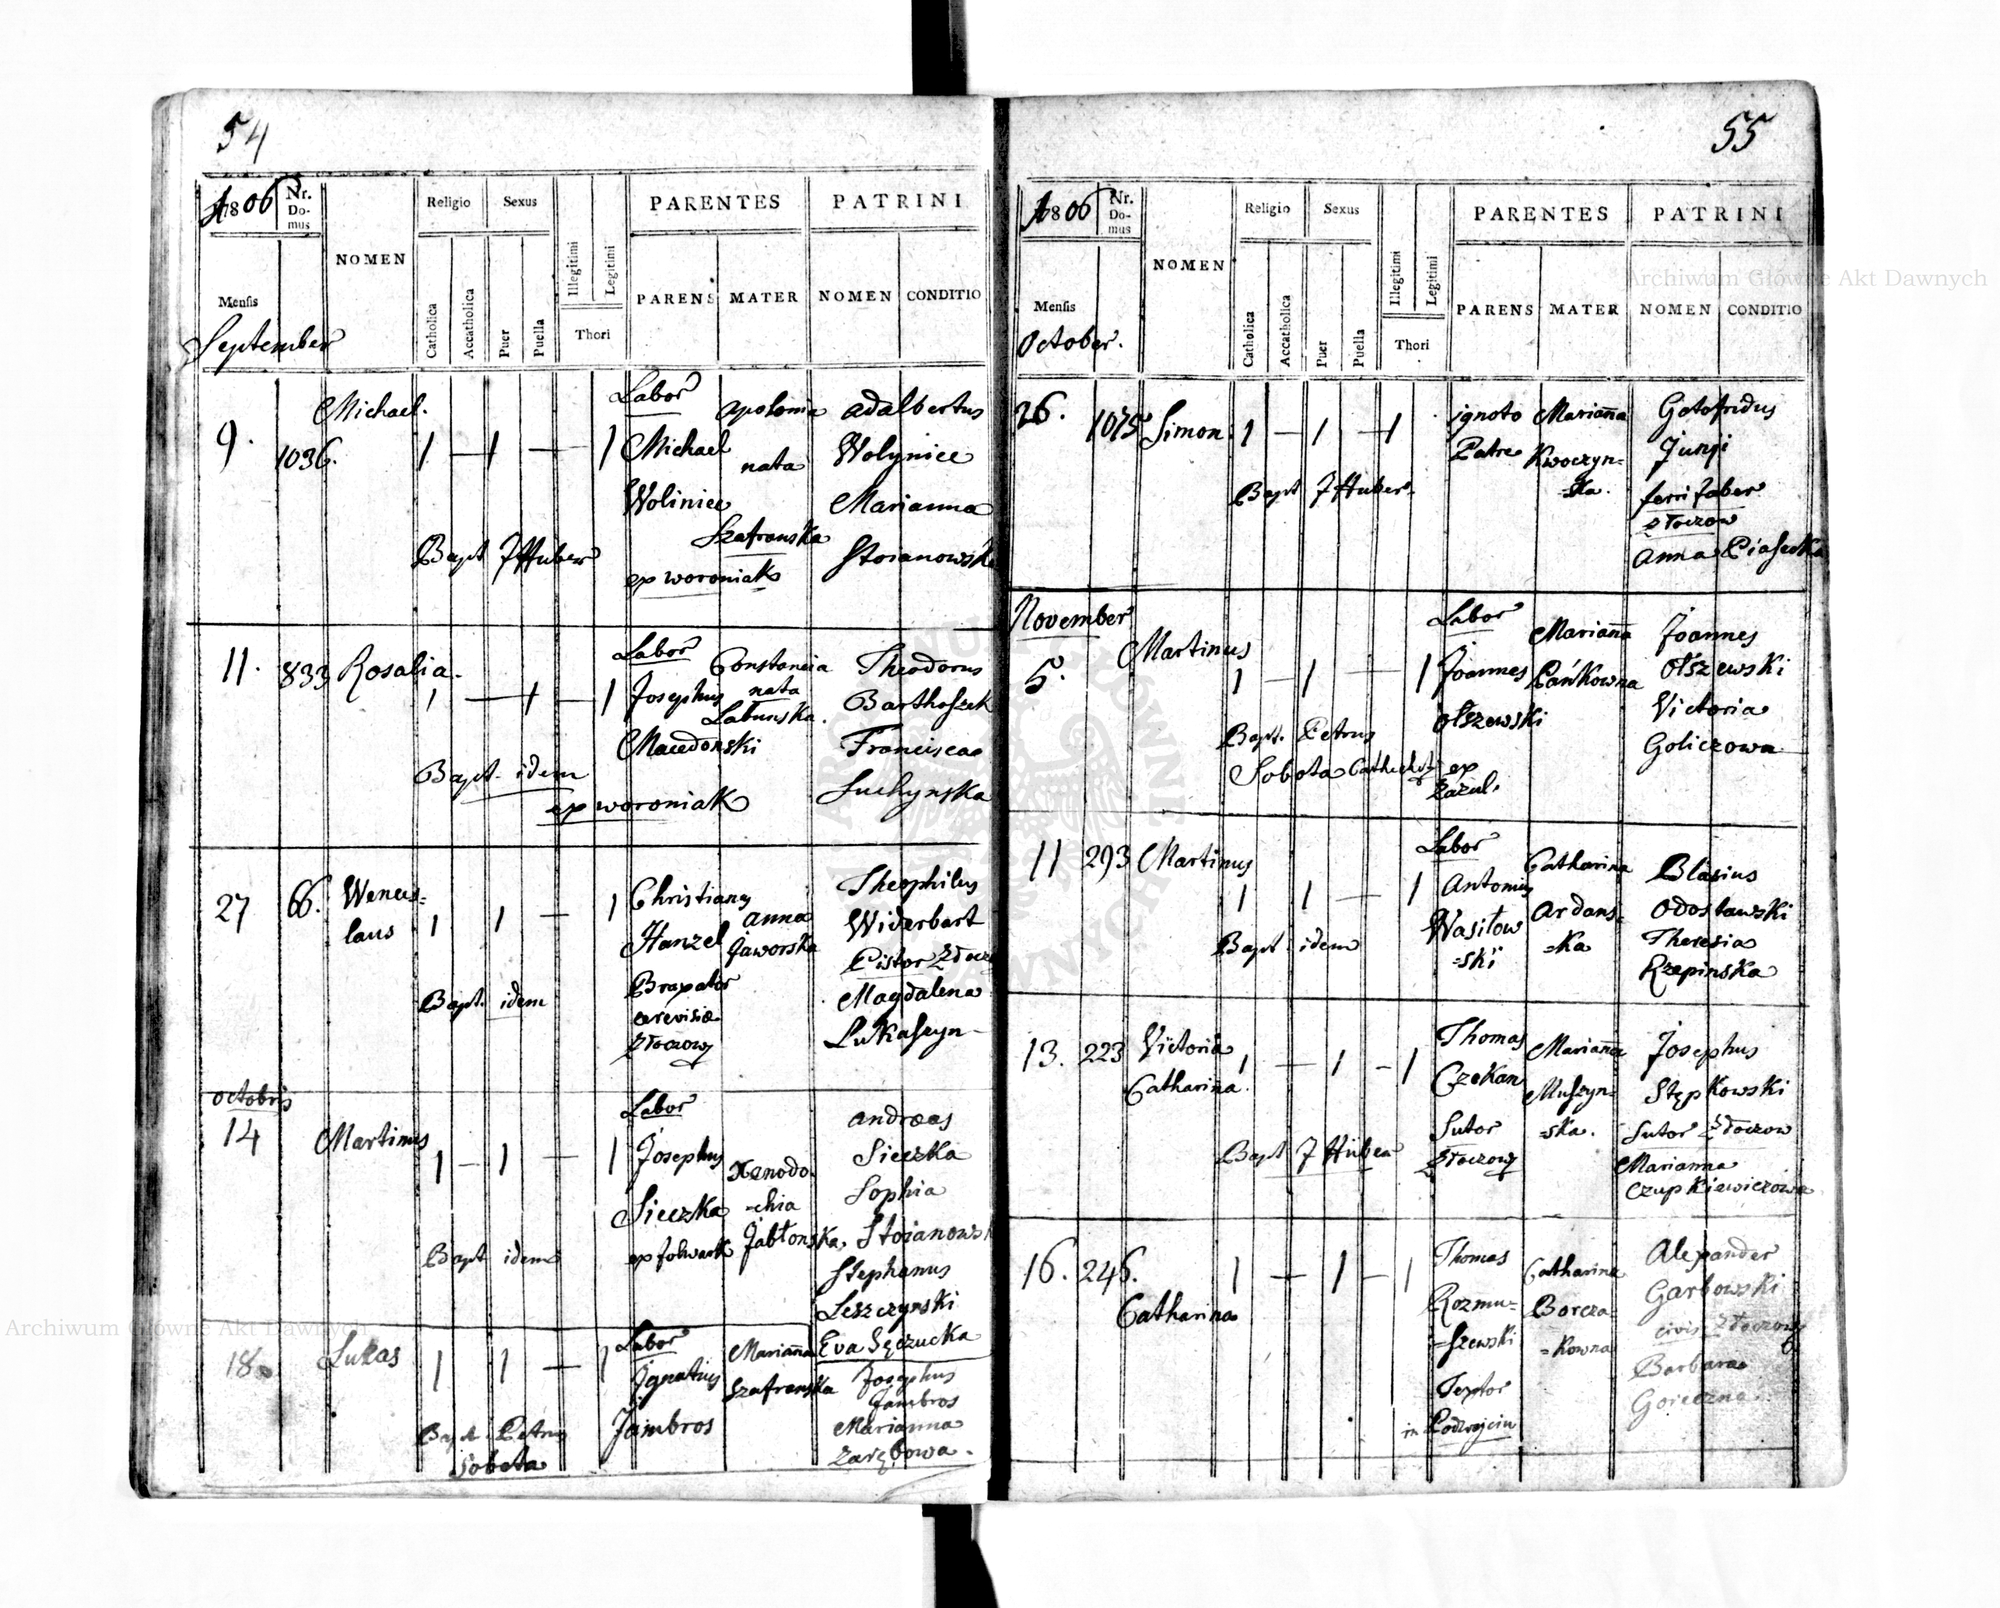 54
1806
Nr. Domus
NOMEN
Religio
Sexus
Illegitimi
Legitimi
PARENTES
PATRINI
Mensis
September
Catholica
Accatholica
Puer
Puella
Thori
PARENS
MATER
NOMEN
CONDITIO
9. 1036. Michael.
1 — 1 — 1
Bapt J Huber
Labor
Michael
Woliniec
ex woroniak
Apolonia
nata
Szafranska
Adalbertus
Wolyniec
Marianna
Stoianowska
11. 833 Rosalia.
1 — 1 — 1
Bapt. idem
Labor
Josephus
Macedonski
ex woroniak
Constancia
nata
Labunska.
Theodorus
Barthoszek
Francisca
Suchynska
27 66. Wences=
laus
1 1 — 1
Bapt. idem
Christianus
Hanzel
Braxator
cerevisiæ
Złoczow
Anna
Jaworska
Theophilus
Widerbart
Pistor Złocz
Magdalena
Lukaszyn
Octobris
14 Martinus
1 — 1 — 1
Bapt idem
Labor
Josephus
Sieczka
ex folwark
Xenodo-
-chia
Jabłonska.
Andreas
Sieczka
Sophia
Stoianowsk
Stephanus
Leszczynski
Eva Sęczucka
18. Lukas
1 1 — 1
Bapt. Petrus
Sobota
Labor
Ignatius
Jambros
Marianna
Szafranska
Josephus
Jambros
Marianna
Zarębowa.
55
1806
Nr. Domus
NOMEN
Religio
Sexus
Illegitimi
Legitimi
PARENTES
PATRINI
Mensis
October.
Catholica
Accatholica
Puer
Puella
Thori
PARENS
MATER
NOMEN
CONDITIO
26. 1075 Simon
1 — 1 — 1
Bapt J Huber.
ignoto
Patre
Marianna
Kwoczyn=
-ska.
Gotofridus
Jungi
ferri faber
Złoczow
Anna Piasecka
November
5. Martinus
1 — 1 — 1
Bapt. Petrus
Sobota
Labor
Joannes
Olszewski
ex
Zazul.
Marianna
Pańkowna
Joannes
Olszewski
Victoria
Goliczowa
11 293 Martinus
1 1 — 1
Bapt idem
Labor
Antonius
Wasiłow
=ski
Catharina
Ardans-
-ka
Blasius
Odosławski
Theresia
Rzepinska
13. 223 Victoria
Catharina.
1 — 1 - 1
Bapt J Huber
Thomas
Czekan
Sutor
Złoczow
Marianna
Muszyn=
-ska.
Josephus
Stępkowski
Sutor Złoczow
Marianna
Czupkiewiczowa
16. 246. Catharina
1 — 1 — 1
Thomas
Rozmu=
=szewski
Textor
in Podwojciu
Catharina
Borcza-
=kowna
Alexander
Garbowski
civis Złoczow
Barbara
Goreczna.
Archiwum Główne Akt Dawnych
Archiwum Główne Akt Dawnych
ARCHIWUM GŁÓWNE AKT DAWNYCH